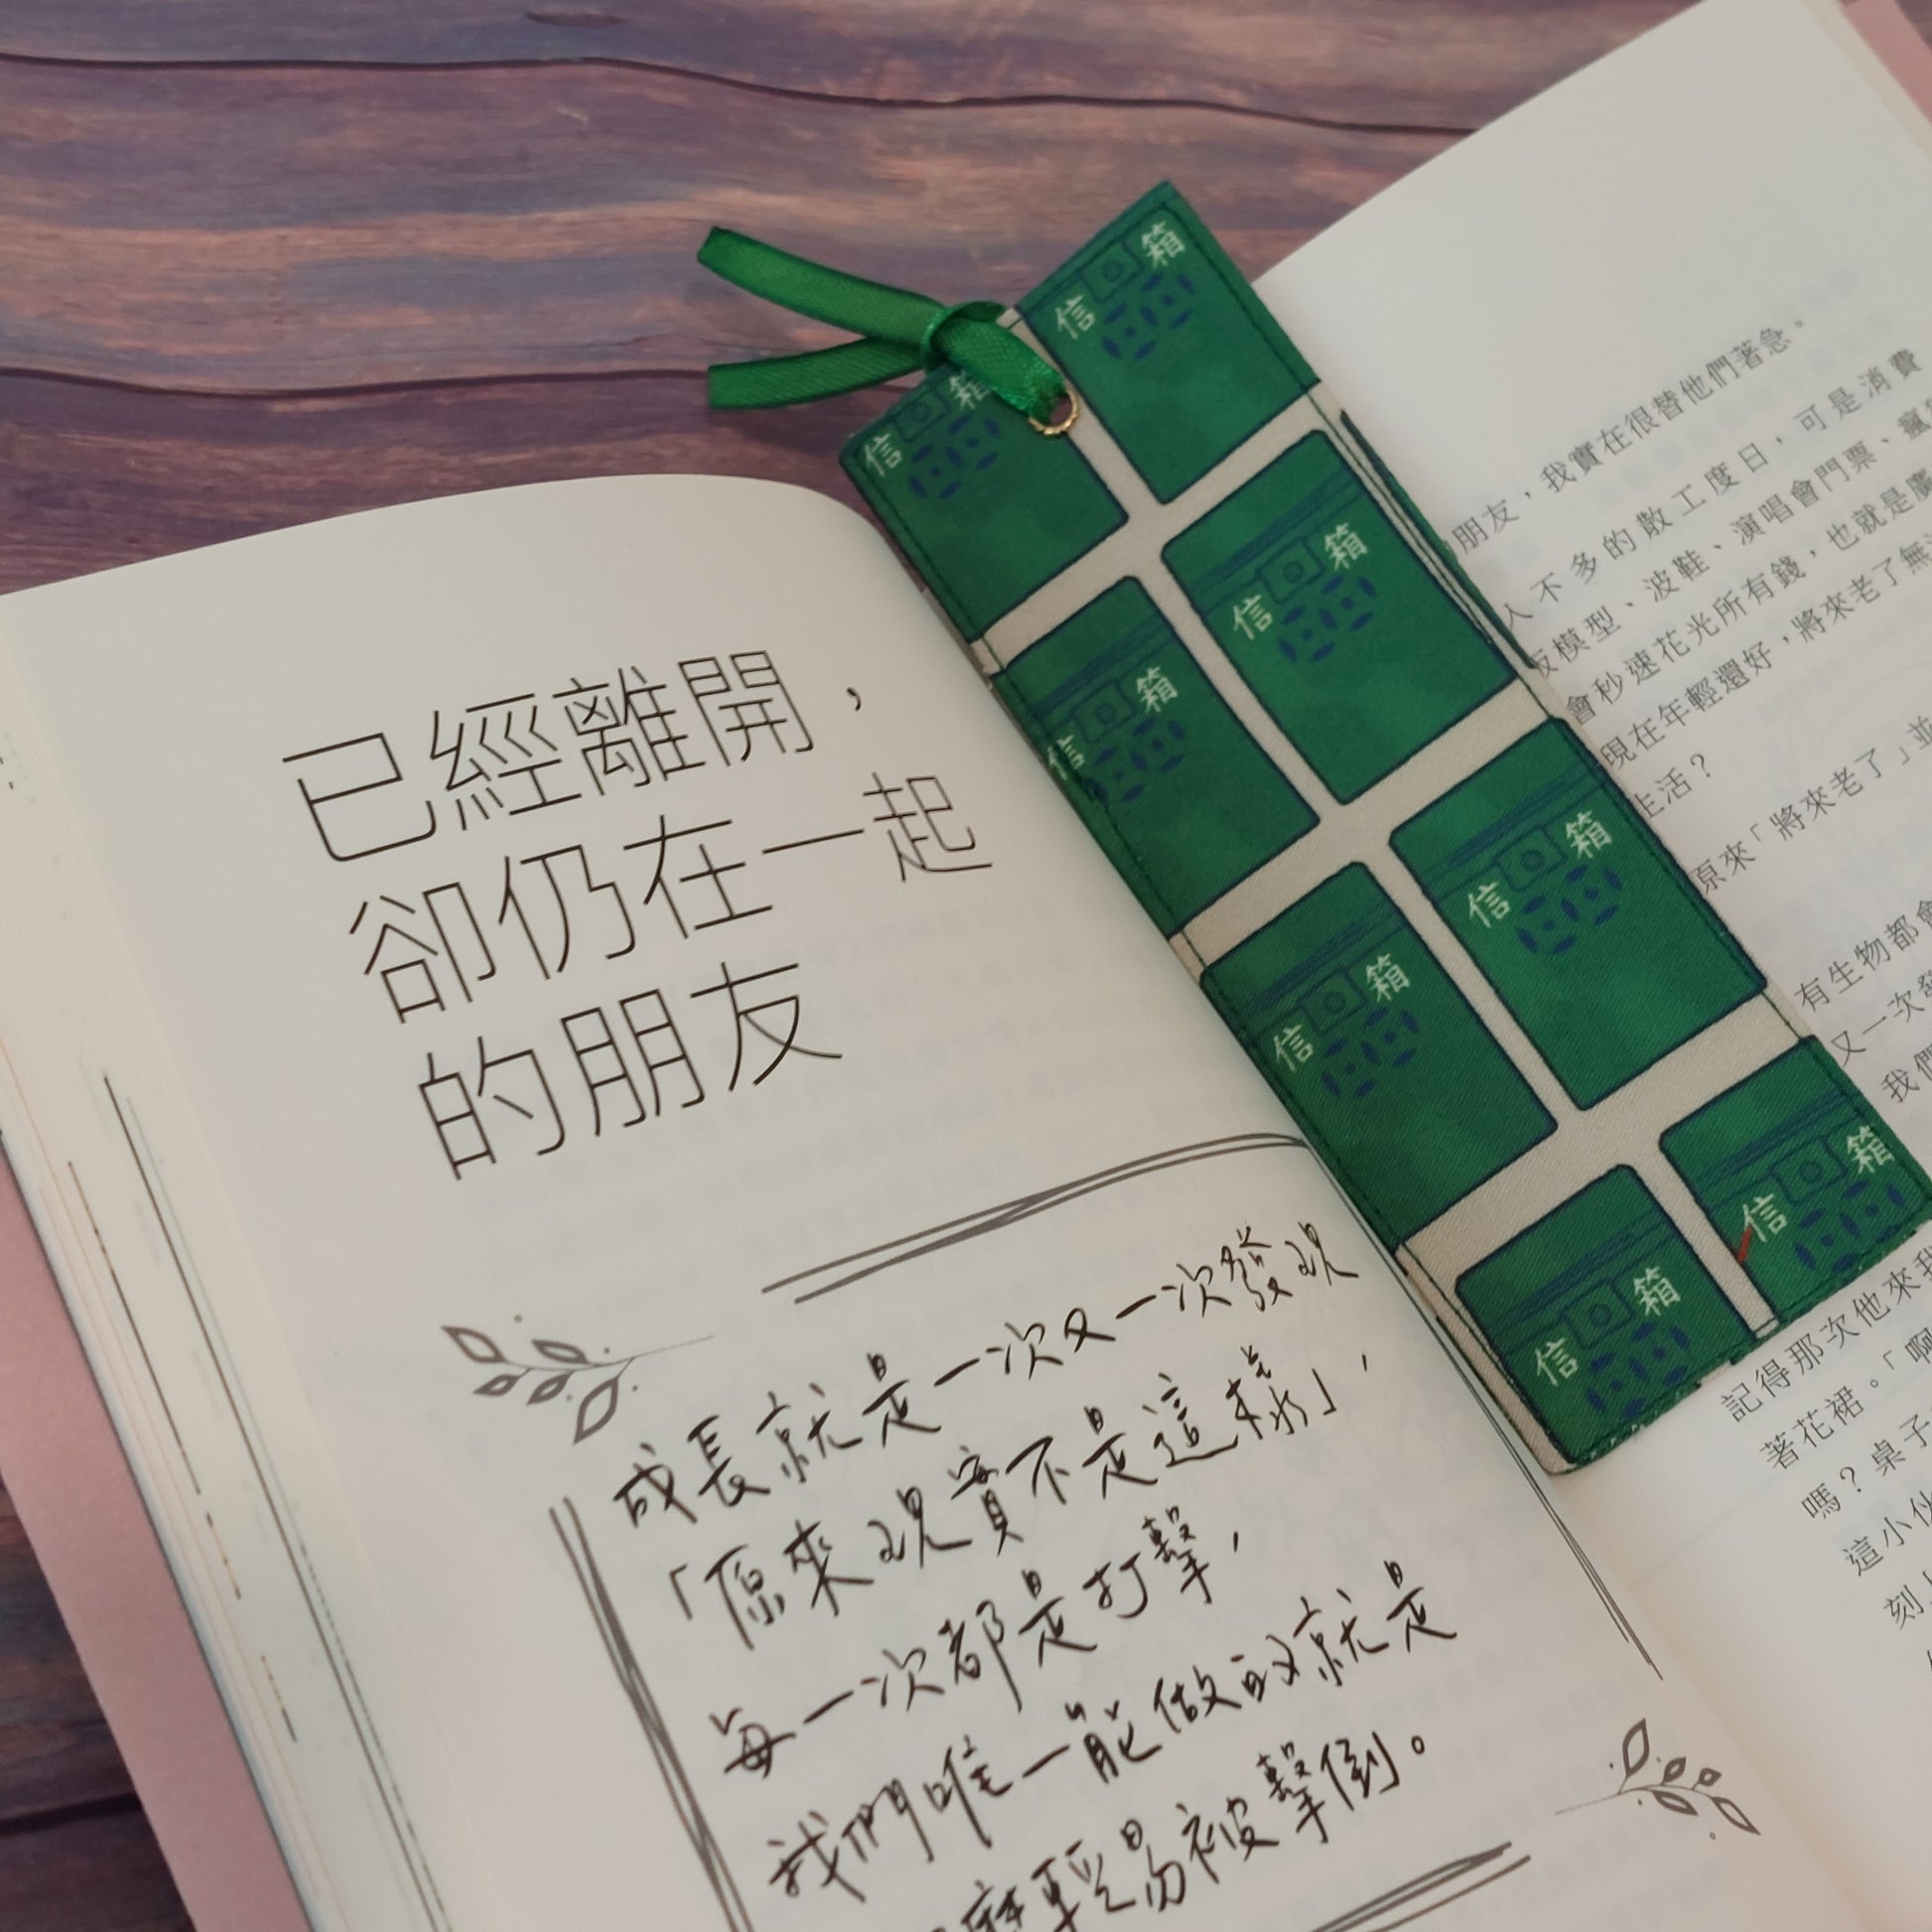 已經離開，
卻仍在一起
的朋友
成長就是一次又一次發現
「原來現實不是這樣」，
每一次都是打擊，
我們唯一能做的就是
麼輕易被擊倒。
信箱
信箱
信箱
信箱
信箱
信箱
信箱
信箱
朋友，我實在很替他們著急。
人不多的散工度日，可是消費
模型、波鞋、演唱會門票、瘋
會秒速花光所有錢，也就是
現在年輕還好，將來老了無
生活？
原來「將來老了」並
有生物都會
又一次發
我們
記得那次他來我
著花裙。「啊
嗎？桌子
這小伙
刻